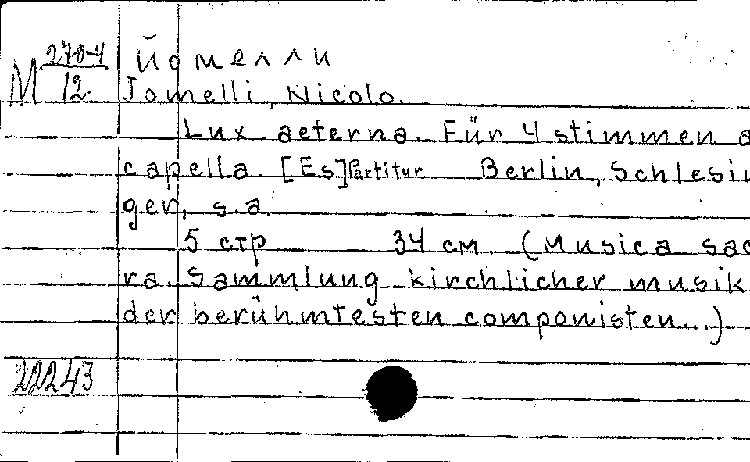 М 270-4/12. Йомелли
Jomelli, Nicolo.
Lux aeterna. Für 4 stimmen a
capella. [Es] Partitur Berlin, Schlesin
ger, s.a.
5 стр 34 см. (Musica sac
ra. Sammlung kirchlicher musik
der berühmtesten componisten...)
22243